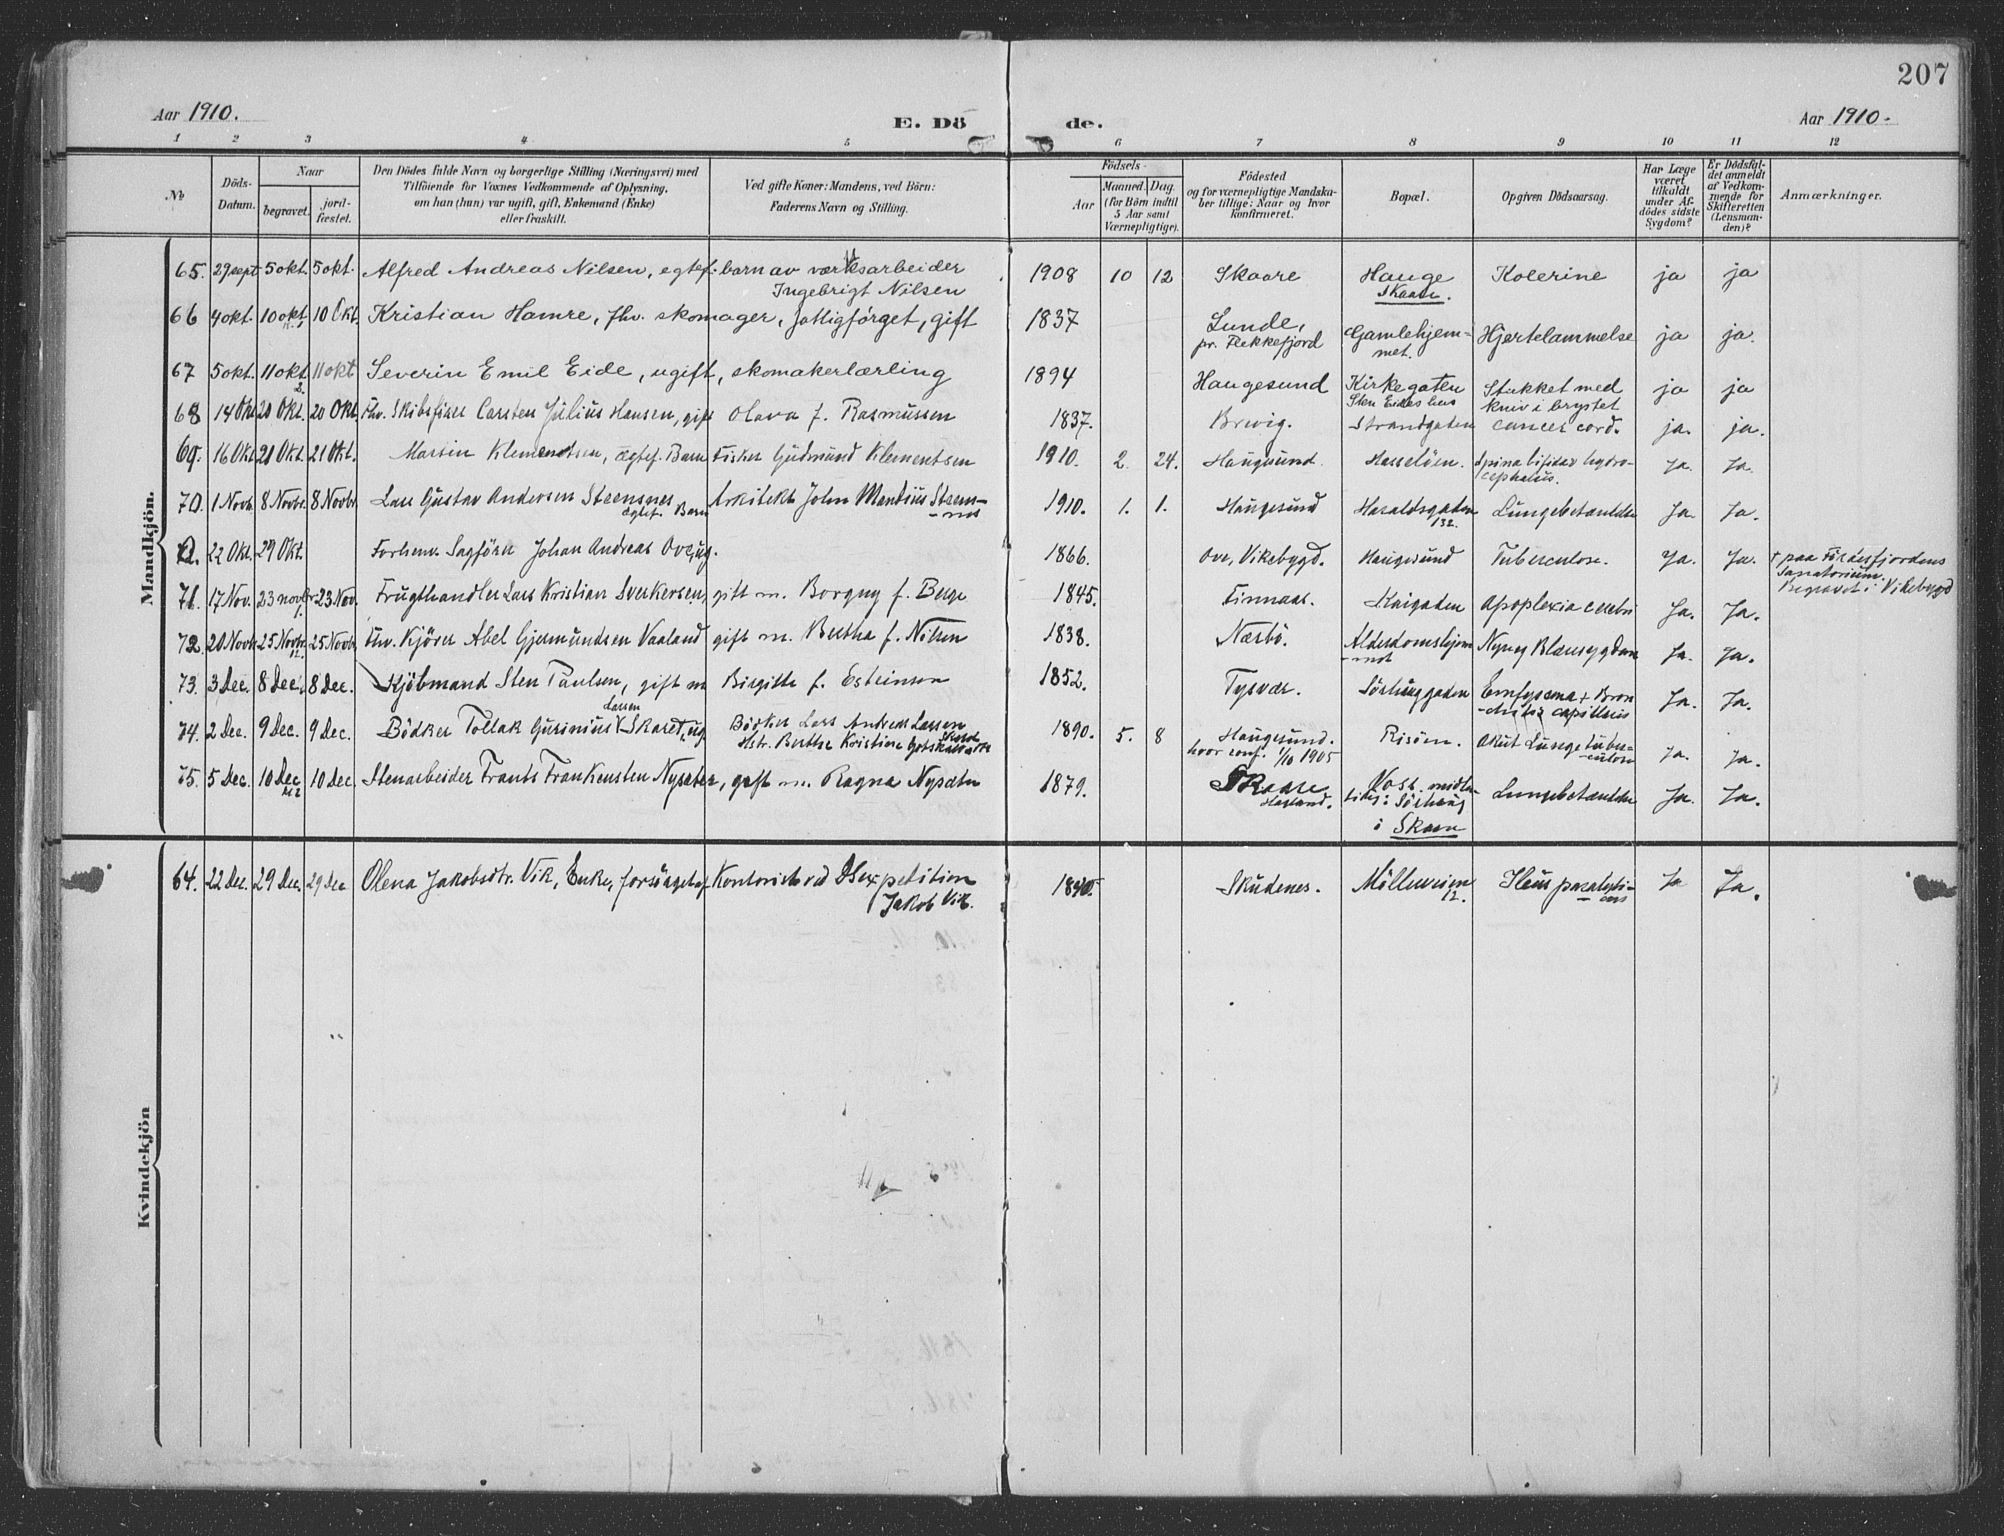 207
Aar 1910. E. Dö de. Aar 1910.
1 2 3 4 5 6 7 8 9 10 11 12
No
Döds-Datum.
Naar
begravet.
jord-fæstet.
Den Dödes fulde Navn og borgerlige Stilling (Næringsvei) med
Tilföiende for Voxnes Vedkommende af Oplysning,
om han (hun) var ugift, gift, Enkemand (Enke)
eller fraskilt.
Ved gifte Koner: Mandens, ved Börn:
Faderens Navn og Stilling.
Födsels-
Aar
Maaned. Dag.
(for Börn indtil
5 Aar samt
Værnepligtige).
Födested
og for værnepligtige Mandska-
ber tillige: Naar og hvor
konfirmeret.
Bopæl.
Opgiven Dödsaarsag.
Har Læge
været
tilkaldt
under Af-
dödes sidste
Sygdom?
Er Dödsfal-
det anmeldt
af Vedkom-
mende for
Skifteretten
(Lensman-
den)?
Anmærkninger.
Mandkjön.
65. 29 sept 5 okt. 5 okt. Alfred Andreas Nilsen, egtef. barn av værksarbeider 1908 10 12 Skaare Hauge Kolerine ja ja
Ingebrigt Nilsen Skaare.
66 4 okt. 10 okt. 10 Okt. Kristian Hamre, fhv. skomager, fattigförget, gift 1837 Lunde, Gamlehjem- Hjertelammelse ja ja.
pr. Flekkefjord met.
67 5 okt. 11 okt. 11 okt Severin Emil Eide, ugift, skomakerlærling 1894 Haugesund Kirkegaten Stukket med ja ja
2. Sten Eides hus kniv i brystet
68 14 Okt. 20 Okt. 20 Okt. Fhv. Skibsfører Carsten Julius Hansen, gift Olava f. Rasmussen 1837. Brevig. Strandgaten cancer cord. ja. ja.
69. 16 Okt. 21 Okt. 21 Okt. Martin Klementsen, ægtef. Barn Fisker Gudmund Klementsen 1910. 2. 24. Haugesund. Hasseløen. Spina bifida hydro-
cephalus. Ja. Ja.
70. 1 Novb. 8 Novbr. 8 Novbr. Lars Gustav Andersen Steensnes Arkitekt John Mandius Steens- 1910. 1. 1. Haugesund Haraldsgaden Lungebetændelse Ja. Ja.
ægtef. Barn nes 132.
22 Okt. 29 Okt. Forhenv. Sagförer Johan Andreas Ove, ug. 1866. Ove, Vikebygd. Haugesund Tuberculose. Ja. Ja. † paa Fördesfjordens
Sanatorium.
Begravet i Vikebygd
71. 17 Nov. 23 novbr. 23 Nov. Frugthandler Lars Kristian Sverkersen, gift m. Borgny f. Berge 1845. Finnaas. Kaigaden Apoplexia cerebri Ja. Ja.
72. 20 Novb. 25 Novbr. 25 Novbr. Fhv. Kjörer Abel Gjermundsen Vaaland gift m. Bertha f. Nilsen 1838. Nærbö. Alderdomshjem- Nyre og Blæresygdom Ja. Ja.
12. met
73. 3 Dec. 8 Dec. 8 Dec. Kjöbmand Sten Paulsen, gift m Birgitte f. Esteinson 1852. Tysvær. Sörhauggaden Emfysema + Bron-
chitis capillaris Ja. Ja.
74. 2 Dec. 9 Dec. 9 Dec. Bödker Tollak Gurinius Larsen Skaret, ug Bödker Lars Andreas Larsen 1890. 5. 8 Haugesund. Risöen. Akut Lungetuber-
Hstr. Berthe Kristine hvor conf. 1/10 1905 culose Ja. Ja.
75. 5 Dec. 10 Dec 10 Dec Stenarbeider Frants Frankensten Nysæter, gift m. Ragna Nysæter 1879. Skaare Lungebetændelse Ja. Ja.
i Sörhaug
i Skaare
Kvindekjön
64. 22 Dec. 29 Dec. 29 Dec Olena Jakobsdtr. Vik, Enke, forsörget af Kontorist ved DSexpedition 1840. Skudenes. Mölleveien Ileus paralyti- Ja Ja.
Jakob Vik. 12. cus